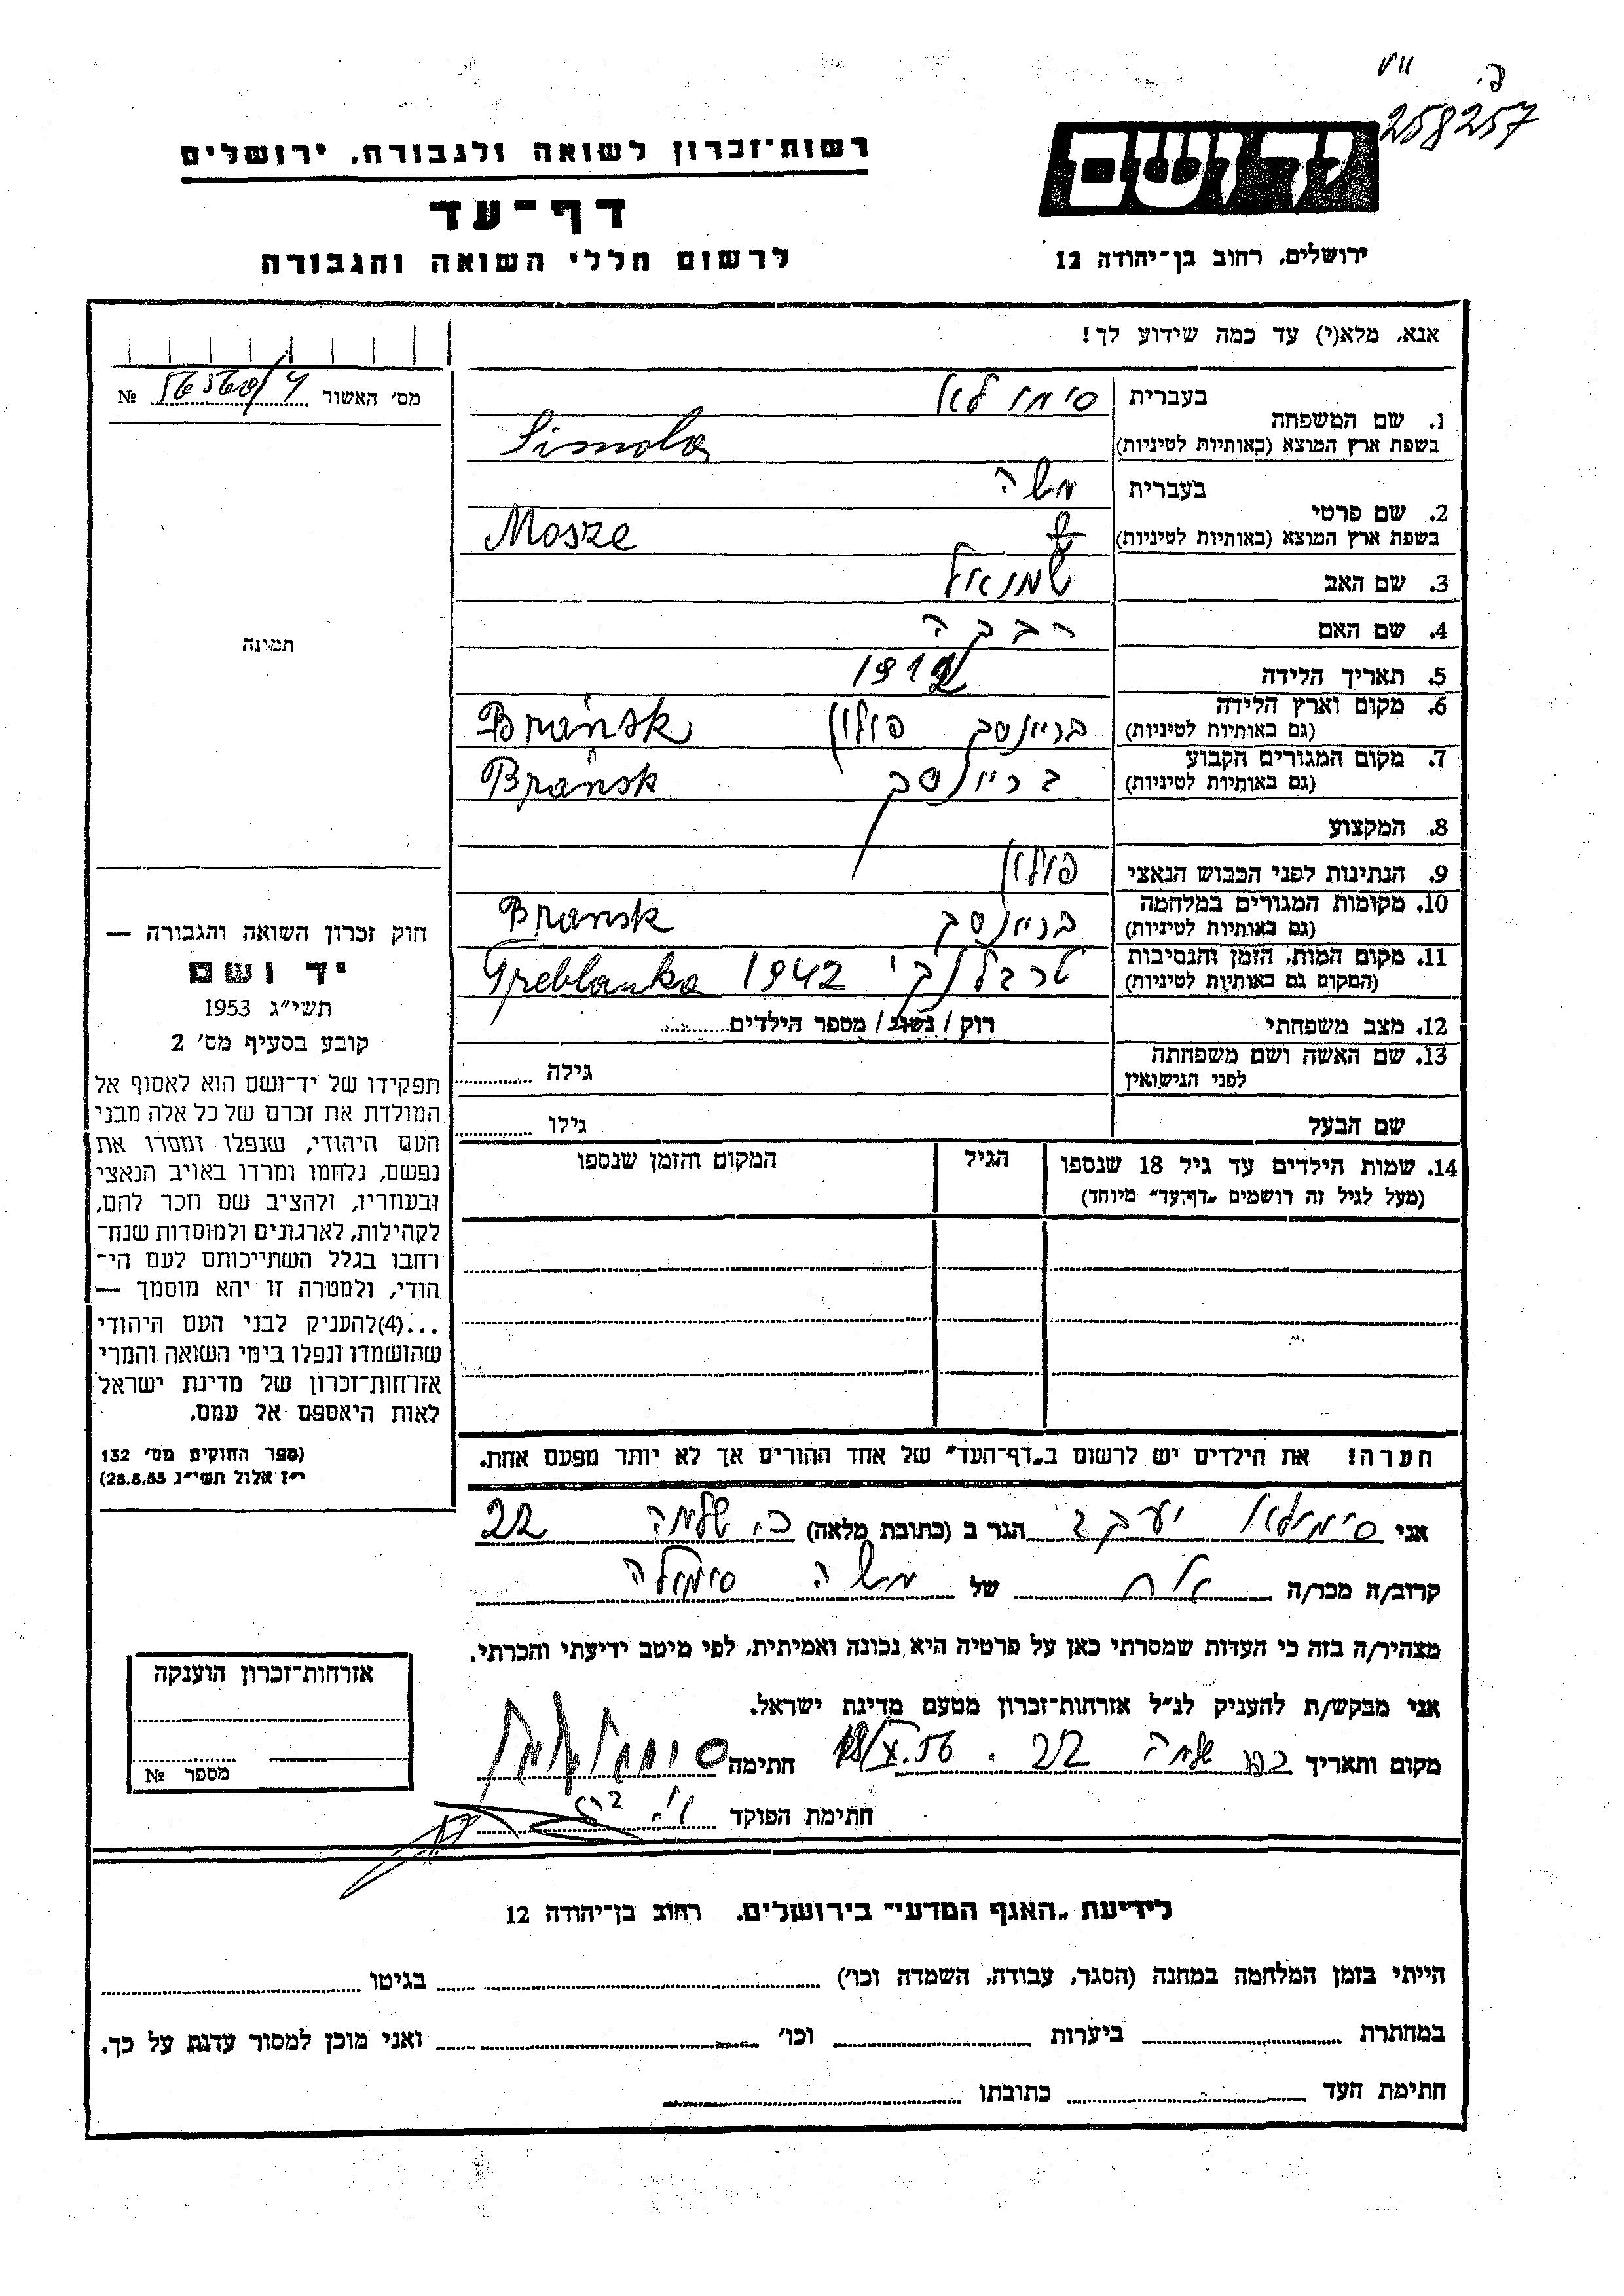 258257
יד ושם
רשות־זכרון לשואה ולגבורה, ירושלים
דף־עד
לרשום חללי השואה והגבורה
ירושלים, רחוב בן־יהודה 12
אנא, מלא(י) עד כמה שידוע לך!
מס' האשור №
1. שם המשפחה בעברית סימולא
בשפת ארץ המוצא (באותיות לטיניות) Simola
2. שם פרטי בעברית משה
בשפת ארץ המוצא (באותיות לטיניות) Mosze
3. שם האב שמואל
4. שם האם רבקה
5. תאריך הלידה
6. מקום וארץ הלידה (גם באותיות לטיניות) בריינסק פולין Brańsk
7. מקום המגורים הקבוע (גם באותיות לטיניות) בריינסק Brańsk
8. המקצוע
9. הנתינות לפני הכבוש הנאצי פולין
10. מקומות המגורים במלחמה (גם באותיות לטיניות) בריינסק Bransk
11. מקום המות, הזמן והנסיבות (המקום גם באותיות לטיניות) טרבלנקי 1942 Treblanka
12. מצב משפחתי רוק / נשוי / מספר הילדים
13. שם האשה ושם משפחתה לפני הנישואין גילה
שם הבעל גילו
14. שמות הילדים עד גיל 18 שנספו הגיל המקום והזמן שנספו
(מעל לגיל זה רושמים „דף־עד" מיוחד)
הערה! את הילדים יש לרשום ב„דף־העד" של אחד ההורים אך לא יותר מפעם אחת.
תמונה
חוק זכרון השואה והגבורה —
יד ושם
תשי"ג 1953
קובע בסעיף מס' 2
תפקידו של יד־ושם הוא לאסוף אל
המולדת את זכרם של כל אלה מבני
העם היהודי, שנפלו ומסרו את
נפשם, נלחמו ומרדו באויב הנאצי
ובעוזריו, ולהציב שם וזכר להם,
לקהילות, לארגונים ולמוסדות שנח־
רבו בגלל השתייכותם לעם הי־
הודי, ולמטרה זו יהא מוסמך —
...(4)להעניק לבני העם היהודי
שהושמדו ונפלו בימי השואה והמרי
אזרחות־זכרון של מדינת ישראל
לאות היאספם אל עמם.
(ספר החוקים מס' 132
י"ז אלול תשי"ג 28.8.53)
אני סימולא יעקב הגר ב (כתובת מלאה) כ. שלמה 22
קרוב/ה מכר/ה אח של משה סימולה
מצהיר/ה בזה כי העדות שמסרתי כאן על פרטיה היא נכונה ואמיתית, לפי מיטב ידיעתי והכרתי.
אני מבקש/ת להעניק לנ"ל אזרחות־זכרון מטעם מדינת ישראל.
מקום ותאריך כפר שלמה 22. חתימה
חתימת הפוקד
אזרחות־זכרון הוענקה
מספר №
לידיעת „האגף המדעי" בירושלים, רחוב בן־יהודה 12
הייתי בזמן המלחמה במחנה (הסגר, עבודה, השמדה וכו') בגיטו
במחתרת ביערות וכו' ואני מוכן למסור עדות על כך.
חתימת העד כתובתו